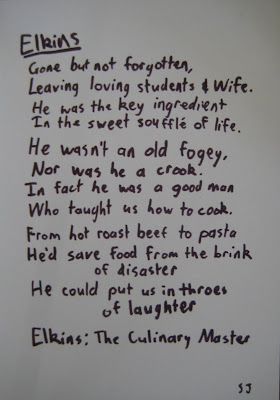 Elkins
Gone but not forgotten,
Leaving loving students & Wife.
He was the key ingredient
In the sweet soufflé of life.
He wasn't an old fogey,
Nor was he a crook.
In fact he was a good man
Who taught us how to cook.
From hot roast beef to pasta
He'd save food from the brink
of disaster
He could put us in throes
of laughter
Elkins: The Culinary Master
SJ